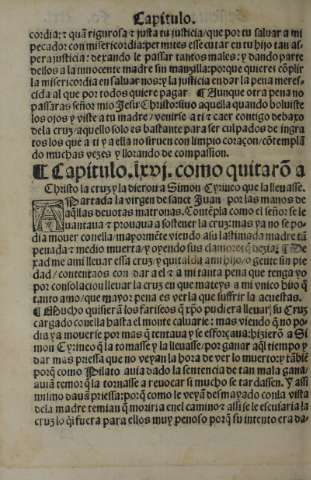 Capitulo.
cordia: ⁊ quã rigurosa ⁊ justa tu justicia/que por tu saluar a mi
pecador: con misericordia: permites esecutar en tu hijo tan as-
pera justicia: dexando le passar tantos males: ⁊ dando parte
dellos a la innocente madre sin manzilla: porque quieres cõplir
la misericordia en saluar nos: ⁊ la justicia en dar la pena meres-
cida al que por todos quiere pagar ¶ Aunque otra pena no
passaras señor mio Jesu Christo: sino aquella quando boluiste
los ojos y viste a tu madre/venirse a ti ⁊ caer contigo debaxo
dela cruz/aquello solo es bastante para ser culpados de ingra
tos los que a ti y a ella no siruen con limpio coraçon/cõtemplã
do muchas vezes y llorando de compassion.
¶ Capitulo. lxvj. como quitarõ a
Christo la cruz y la dieron a Simon Cyrineo que la lleuasse.
APartada la virgen de sanct Juan por las manos de
aq̃llas deuotas matronas. Contẽpla como el señor se le
uantaua ⁊ prouaua a sostener la cruz: mas ya no se po-
dia mouer con ella mayormẽte viẽdo assi la lastimada madre tã
penada ⁊ medio muerta y oyendo sus clamores q̃ dezia ¶ De
xad me a mi lleuar essa cruz y quitalda a mi hijo/o gente sin pie
dad/contentaos con dar a el ⁊ a mi tanta pena que tenga yo
por consolacion lleuar la cruz en que mateys a mi vnico hijo q̃
tanto amo/que mayor pena es ver la que suffrir la acuestas.
¶ Mucho quisierã los fariseos q̃ xp̃o pudiera lleuar su Cruz
cargado con ella hasta el monte caluario: mas viendo q̃ no po-
dia ya mouerse por mas q̃ tentaua y se efforçaua: hizierõ a Si
mon Cyrineo q̃ la tomasse y la lleuasse/por ganar aq̃l tiempo y
dar mas priessa que no veyan la hora de ver lo muerto: y tãbiẽ
porq̃ como Pilato auia dado la sentencia de tan mala gana/
auiã temor q̃ la tornasse a reuocar si mucho se tardassen. Y assi
mismo dauã priessa: porq̃ como le veyã desmayado con la vista
dela madre temian q̃ moriria en el camino ⁊ assi se le escusaria la
cruz lo q̃ fuera para ellos muy penoso porq̃ su intento era da-